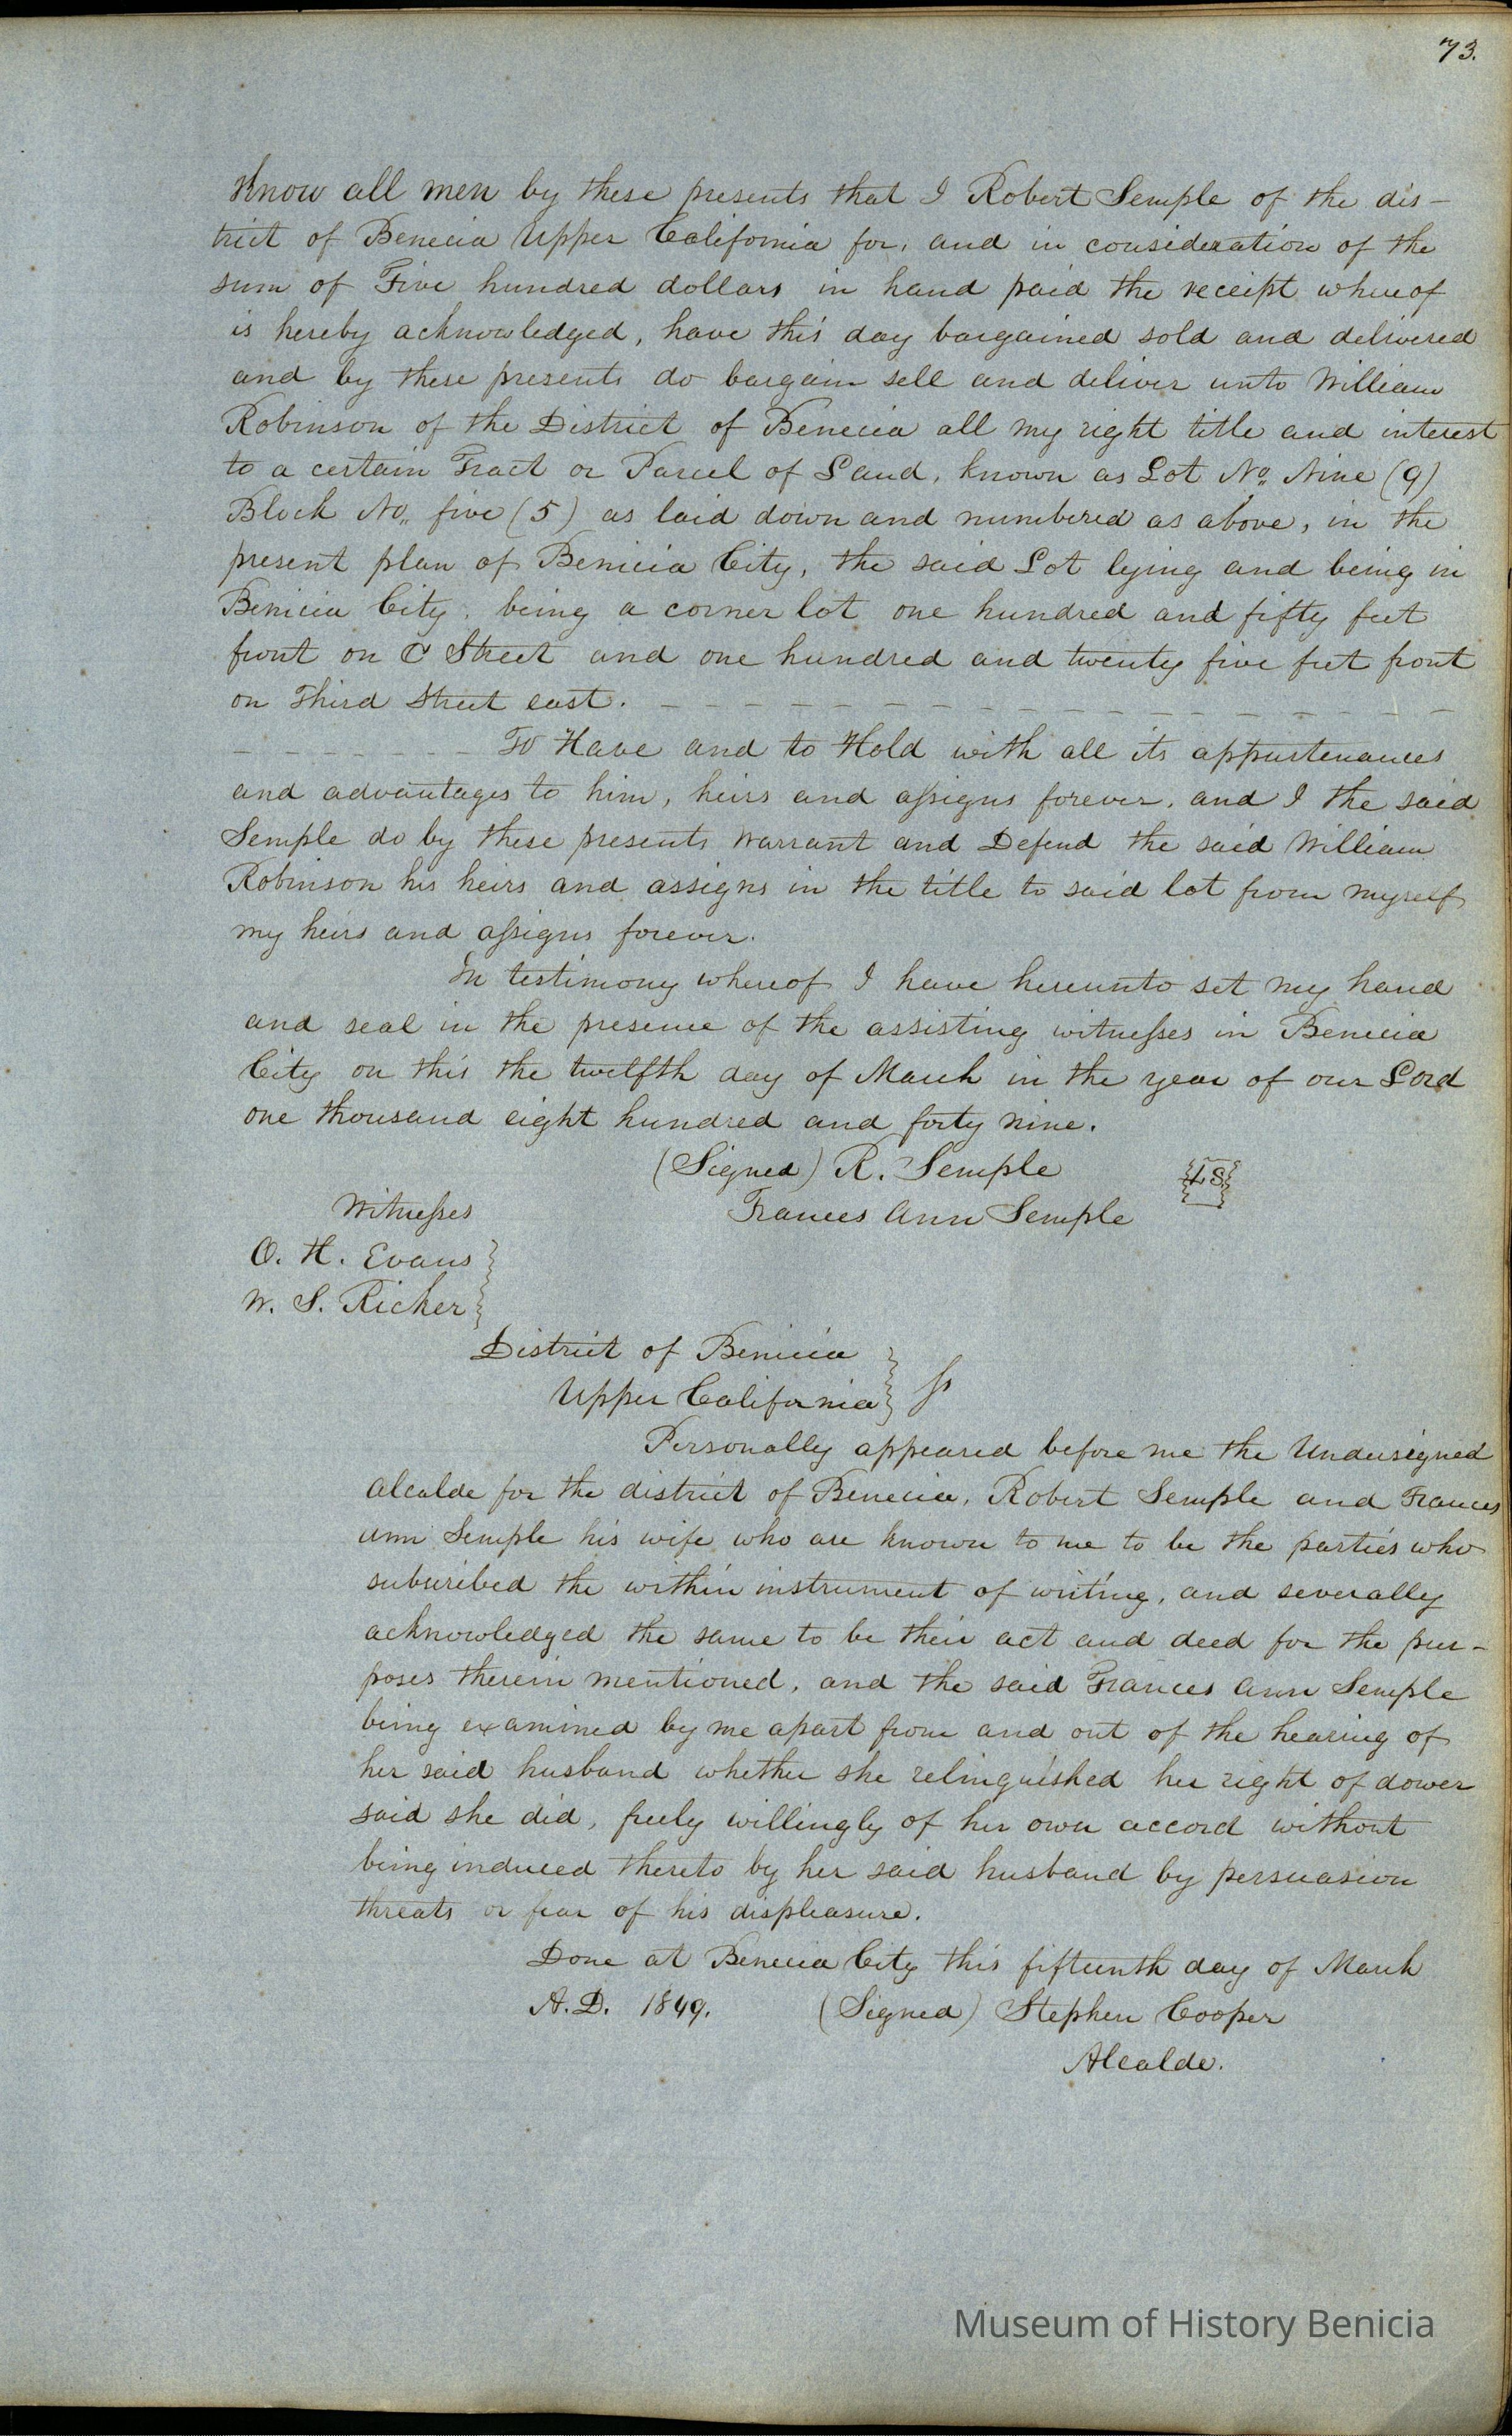 73.
Know all men by these presents that I Robert Semple of the dis-
trict of Benecia Upper California for, and in consideration of the
sum of Five hundred dollars in hand paid the receipt whereof
is hereby acknowledged, have this day bargained sold and delivered
and by these presents do bargain sell and deliver unto William
Robinson of the District of Benecia all my right title and interest
to a certain Tract or Parcel of Land, known as Lot No. Nine (9)
Block No. five (5) as laid down and numbered as above, in the
present plan of Benicia City, the said Lot lying and being in
Benicia City, being a corner lot one hundred and fifty feet
front on C Street and one hundred and twenty five feet front
on Third Street east. - - - - - - - - - - - - - - - - - -
- - - - - - To Have and to Hold with all its appurtenances
and advantages to him, heirs and assigns forever, and I the said
Semple do by these presents Warrant and Defend the said William
Robinson his heirs and assigns in the title to said lot from myself
my heirs and assigns forever.
In testimony whereof I have hereunto set my hand
and seal in the presence of the assisting witnesses in Benecia
City on this the twelfth day of March in the year of our Lord
one thousand eight hundred and forty nine.
(Signed) R. Semple LS
Witnesses Frances Ann Semple
O. H. Evans
W. S. Richer
District of Benicia
Upper California ss
Personally appeared before me the Undersigned
Alcalde for the district of Benecia, Robert Semple and Frances
ann Semple his wife who are known to me to be the parties who
subscribed the within instrument of writing, and severally
acknowledged the same to be their act and deed for the pur-
poses therein mentioned, and the said Frances Ann Semple
being examined by me apart from and out of the hearing of
her said husband whether she relinquished her right of dower
said she did, freely willingly of her own accord without
being induced thereto by her said husband by persuasion
threats or fear of his displeasure.
Done at Benecia City this fifteenth day of March
A.D. 1849. (Signed) Stephen Cooper
Alcalde.
Museum of History Benicia